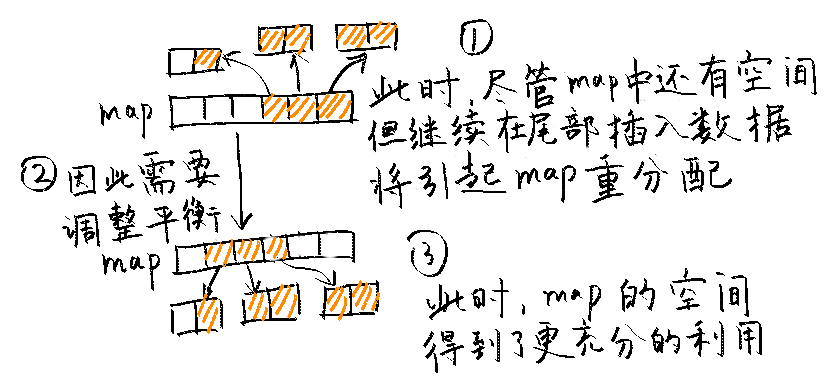 ①
map
此时,尽管map中还有空间
但继续在尾部插入数据
将引起map重分配
② 因此需要
调整平衡
map
③
此时,map的空间
得到了更充分的利用